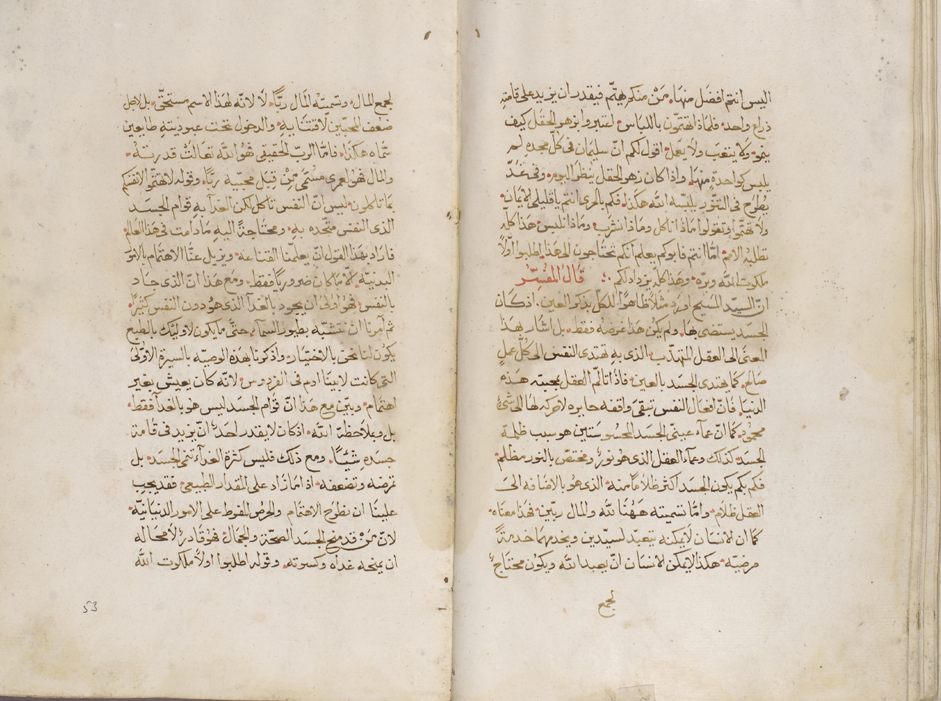 اليس انتم افضل منها، مَنْ منكم يهتم فيقدر ان يزيد على قامته
ذراع واحد، فلماذا تهتمون باللباس، اعتبروا بزهر الحقل كيف
ينمو، ولا يتعب ولا يعمل، اقول لكم ان سليمان في كل مجده لم
يلبس كواحدة منها، واذا كان زهر الحقل ينظر اليوم، وفي غد
يطرح في التنور، يلبسه الله هكذا، فكم بالحري انتم يا قليلي الايمان،
ولا تهتموا وتقولوا ماذا ناكل وماذا نشرب، وماذا نلبس، هذا كله
تطلبه الامم، امّا انتم فابوكم يعلم انكم تحتاجون الى هذا، اطلبوا اولاً
ملكوت الله وبره، وهذا كله يزداد لكم ؞ قال المفسّر
انّ السيد المسيح اورد مثلا ظاهرًا للكل بذكر العين، اذ كان
الجسد يستضى بها، ولم يكن هذا غرضه فقط، بل اشار بهذا
المعنى الى العقل المهذب، الذى به تهتدى النفس الى كل عمل
صالح، كما يهتدى الجسد بالعين، فاذا تالّم العقل بمحبته هذه
الدنيا، فانّ افعال النفس تبقى واقفه حايره لا حركه لها الى شى
محمود، كما ان عماء عينى الجسد المحسوستين هو سبب ظلمة
الجسد، كذلك وعماء العقل الذى هو نورٌ، ومختص بالنور مظلم،
فكم بكم يكون الجسد اكثر ظلامًا منه، الذى هو بالاضافه الى
العقل ظلام، وامّا تسميته ههُنا لله والمال ربّين، فهذا معناه،
كما ان الانسان لا يمكنه يتعبد لسيدين ويخدمهما خدمةً
مرضيّه، هكذا لا يمكن الانسان انّ يعبد الله ويكون محتاج
لجمع
لجمع المال، وتسميته المال ربًّا، لا لانّه لهذا الاسم مستحقّ، بل لاجل
ضعف المحبّين لاقتنائه، والدخول تحت عبوديته طايعين
سمّاه هكذا، فامّا الرب الحقيقى فهو الله تعالت قدرته،
والمال فهو لعمرى مسمّى مِنْ قِبَل محبيه ربًّا، وقوله لا تهتموا لانفسكم
بما تاكلون، ليس انّ النفس تاكل لكن الغذآ به قوام الجسد
الذى النفس متّحده به، ومحتاجة اليه ما دامت فى هذا العالم،
فاراد بهذا القول انّ يعلّمنا القناعه، ويزيل عنّا الاهتمام بالامور
البدنيّه، الّا ما كان ضروريًّا فقط، ومع هذا انّ الذى جاد
بالنفس فهو اولى ان يجود بالغذآ الذى هو دون النفس كثيرًا،
ثم امرنا انّ نتشبّه بطيور السمآء، حتّى ما يكون لاوليك بالطبع
يكون لنا نحن بالاختيار، واذكرنا بهذه الوصيه بالسيرة الاولى
التى كانت لابينا ادم فى الفردوس، لانّه كان يعيش بغير
اهتمام، وبيّن مع هذا انّ قوام الجسد ليس هو بالغدآ فقط،
بل وبملاحظة الله، اذ كان لا يقدر احد انّ يزيد فى قامة
جسده شيئًا، ومع ذلك فليس كثرة الغدآء تنمى الجسد، بل
تمرضه وتضعفه، اذا ما زاد على المقدار الطبيعى، فقد يجب
علينا ان نطرح الاهتمام والحرص المفرط على الامور الدنيانيّه،
لانّ مَنْ قد منح الجسد الصحّة والجمال، فهو قادرٌ لا محاله
ان يمنحه غداه وكسوته، وقوله اطلبوا اولاً ملكوت الله
53